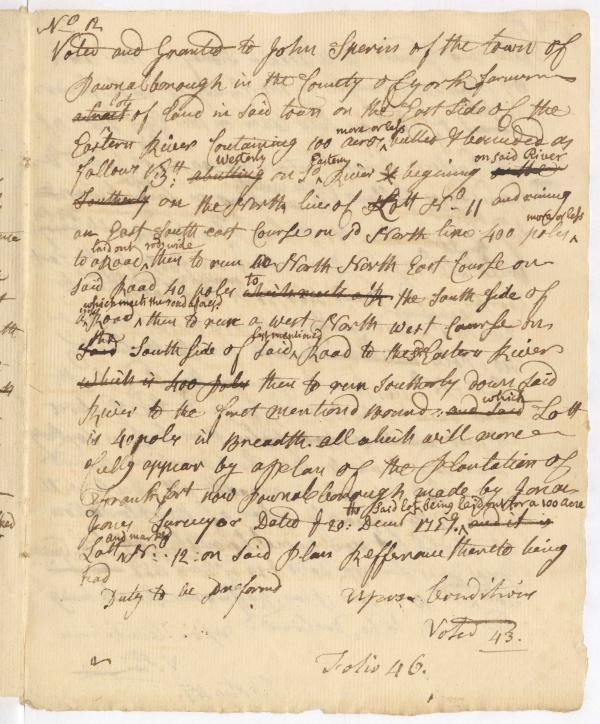 No 12
Voted and Granted to John Spering of the town of
Pownalborough in the County of york
a tract lot of land in said town on the East Side of the
Eastern River Containing 100 acres more or less butted & bounded as
follows Vizt: abutting westerly on sd Eastern River & begining on said River
Southerly on the North line of Lott No 11 and runing
an East South east Course on sd North line 400 poles more or less
to a Road laid out rods wide then to run North North East Course on
said Road 40 poles to which meets with the South Side of
a Road which meets the road aforesd then to run a west North west Course on
Said the South side of Said last mentioned Road to the Eastern River
which is 400 poles then to run Southerly down said
River to the first mentiond Bound: and said which Lott
is 40 poles in Breadth. all which will more
fully appear by a plan of the plantation of
Frankfort now Pownalborough made by Jonas
Jones Surveyor Dated 20: Decr 1759, the Said Lot being laid out for a 100 acre and it is
Lott and marked No: 12: on Said Plan Refferance thereto being
had
Duty to be preformd Upon Conditions
Voted 43.
Folio 46.